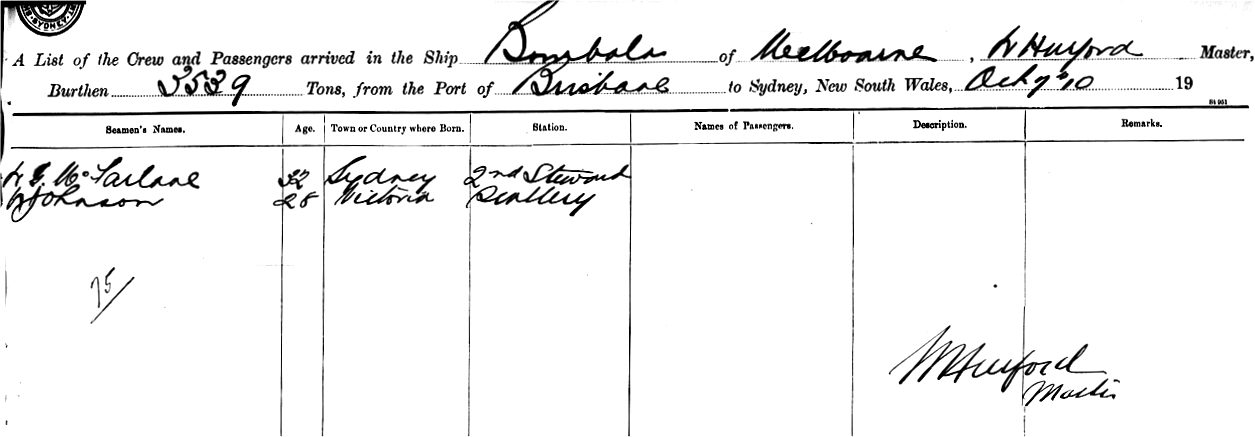 SYDNEY
A List of the Crew and Passengers arrived in the Ship Bombala of Melbourne, W Hurford Master,
Burthen 3539 Tons, from the Port of Brisbane to Sydney, New South Wales, Oct 7th 10 19
St 951
Seamen's Names. Age. Town or Country where Born. Station. Names of Passengers. Description. Remarks.
McFarlane 32 Sydney 2nd Steward
W Johnson 28 Victoria Scullery
75/
W Hurford
Master